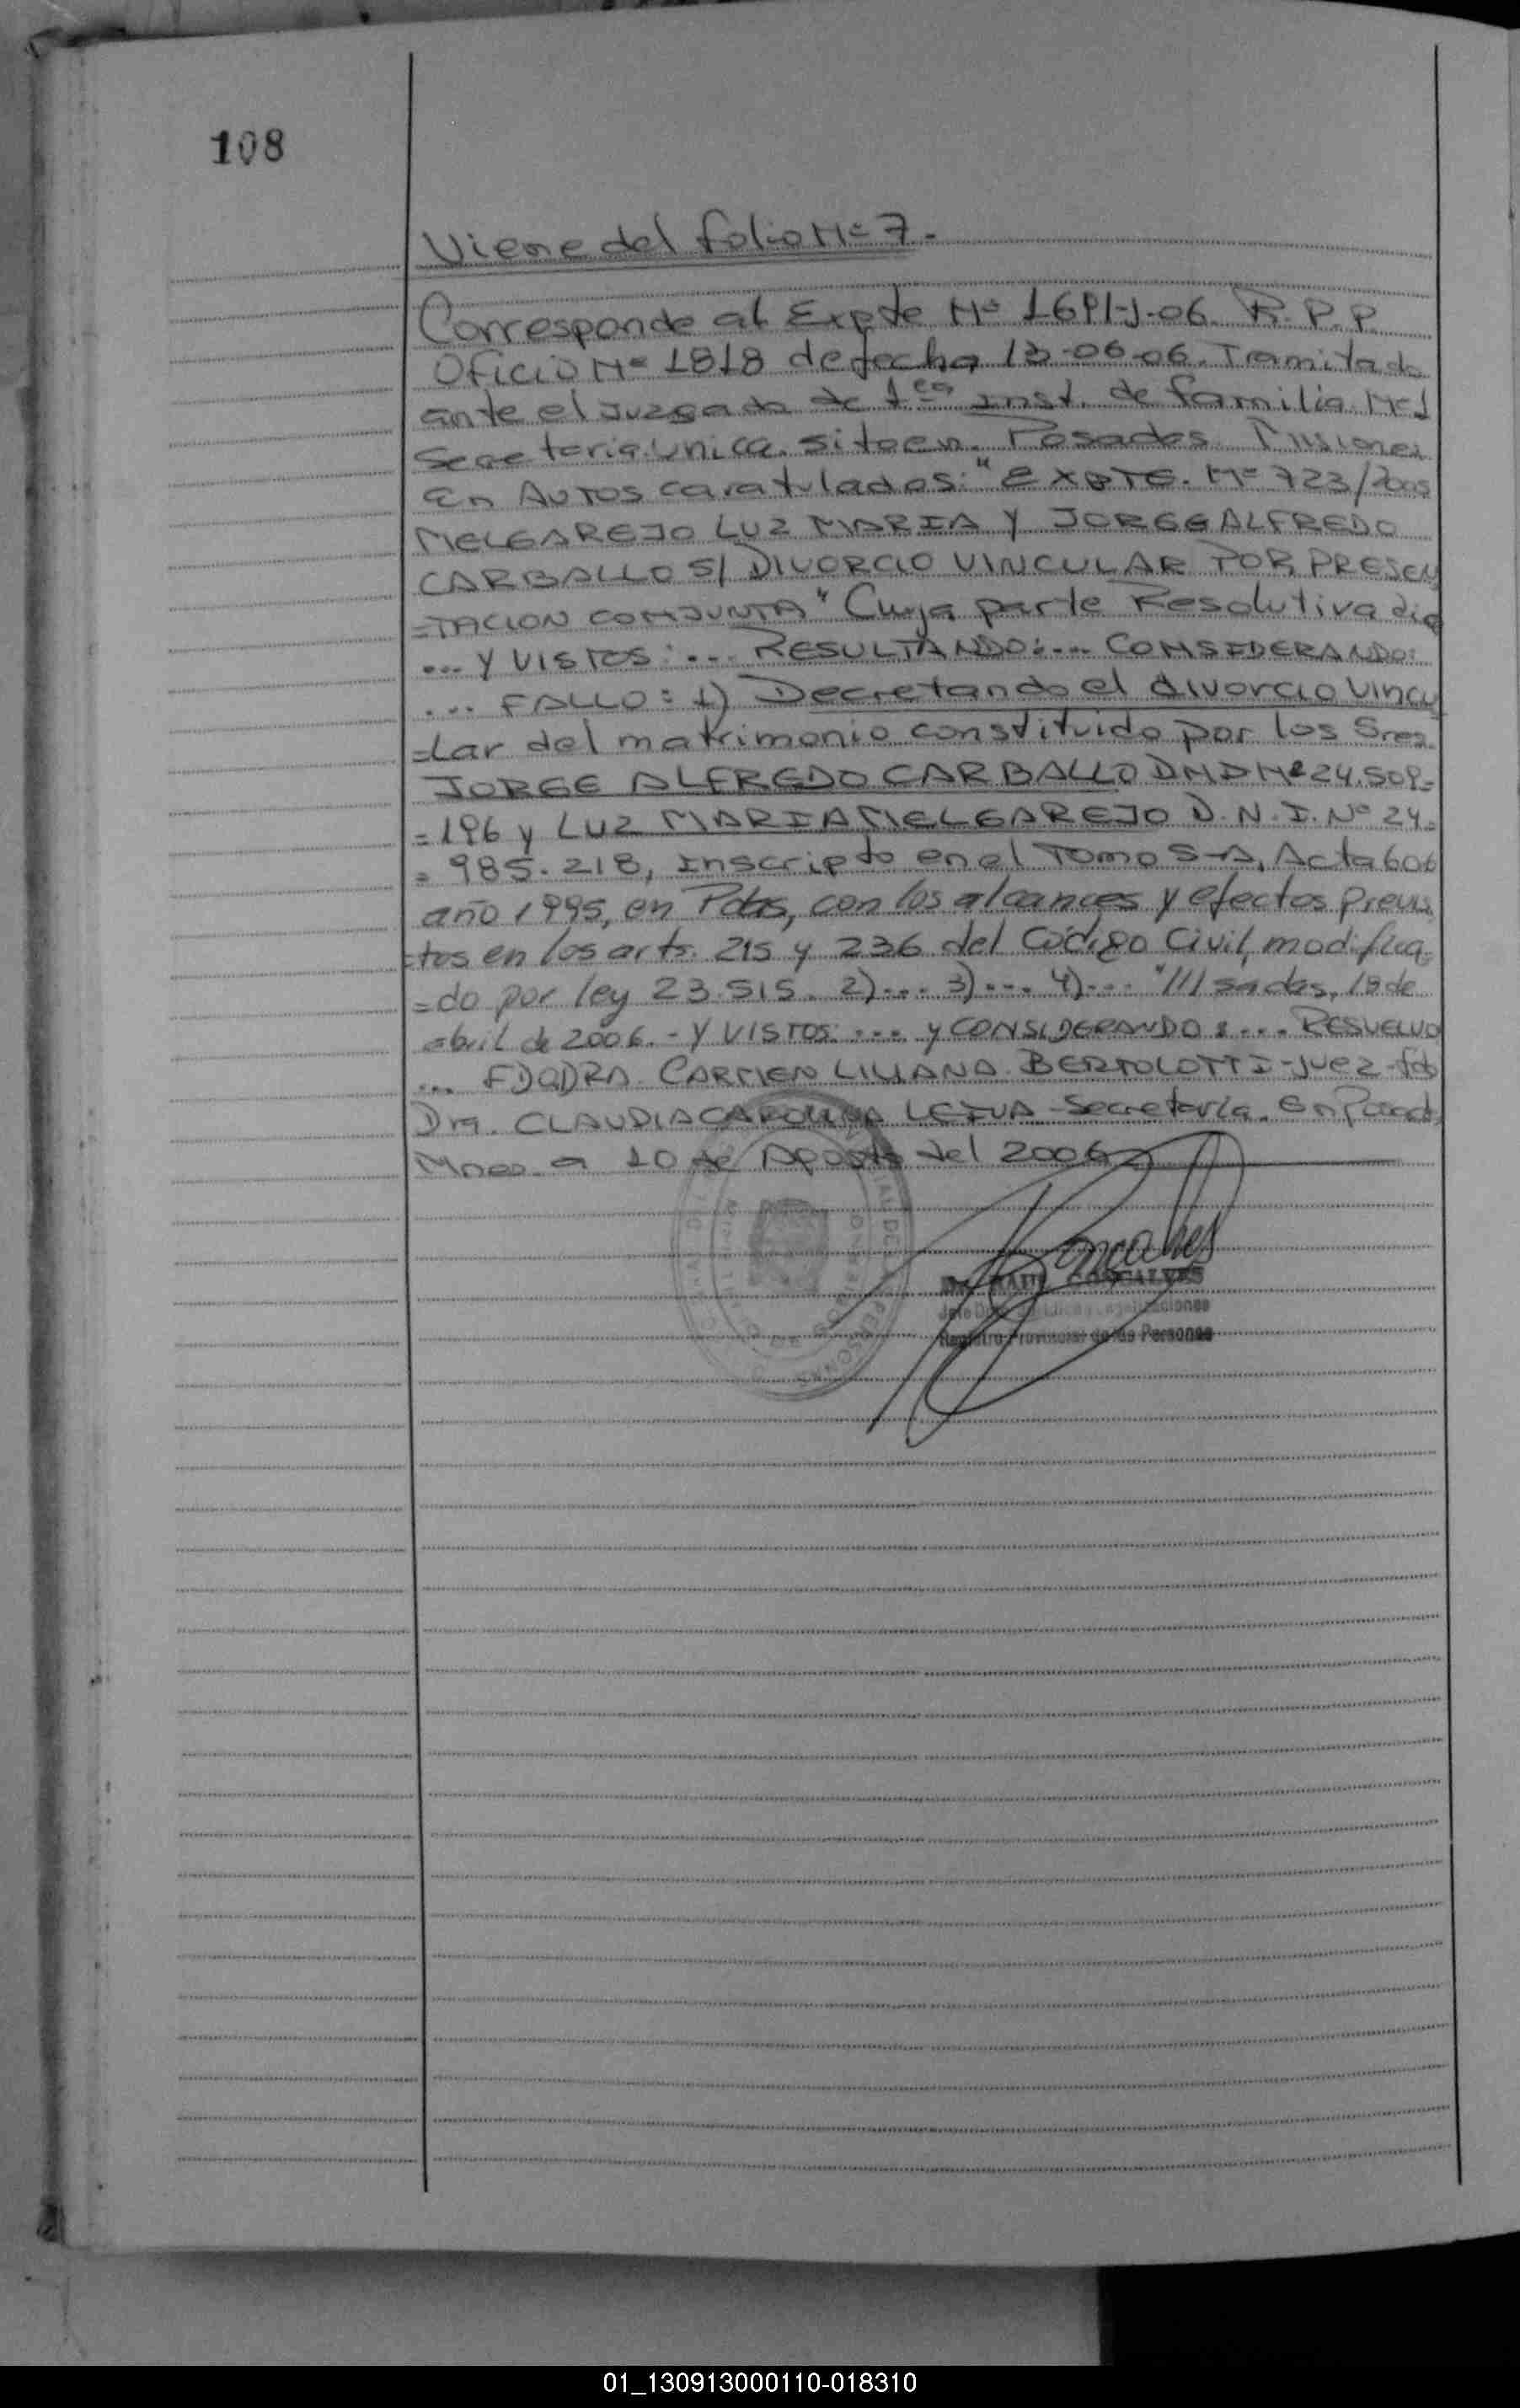 108
Viene del folio Nº 7.
Corresponde al Expte Nº 1691-J-06. R.P.P.
Oficio Nº 1818 de fecha 13-06-06. Tramitado
ante el Juzgado de 1era Inst. de familia Nº 1
Secretaria Unica. sito en. Posadas. Misiones
En Autos caratulados: "EXPTE. Nº 723/2005
MELGAREJO LUZ MARIA Y JORGE ALFREDO
CARBALLO S/ DIVORCIO VINCULAR POR PRESEN
=TACION CONJUNTA" Cuya parte Resolutiva dice
... Y VISTOS: ... RESULTANDO: ... CONSIDERANDO:
... FALLO: 1) Decretando el divorcio vincu
=lar del matrimonio constituido por los Sres.
JORGE ALFREDO CARBALLO DNI Nº 24.509=
=196 y LUZ MARIA MELGAREJO D.N.I. Nº 24=
= 985.218, Inscripto en el Tomo 5-A, Acta 606
año 1995, en Pdas, con los alcances y efectos previs
=tos en los arts. 215 y 236 del Código Civil, modifica=
=do por ley 23.515. 2)... 3)... 4)... "///sadas, 19 de
abril de 2006.- Y VISTOS: ... y CONSIDERANDO: ... RESUELVO
... FDO DRA. CARMEN LILIANA BERTOLOTTI-Juez-fdo
Dra. CLAUDIA CAROLINA LEIVA-Secretaria. En Posad.
Mnes. a 10 de Agosto del 2006
Dr. RAUL GONCALVES
Registro Provincial de las Personas
01_130913000110-018310